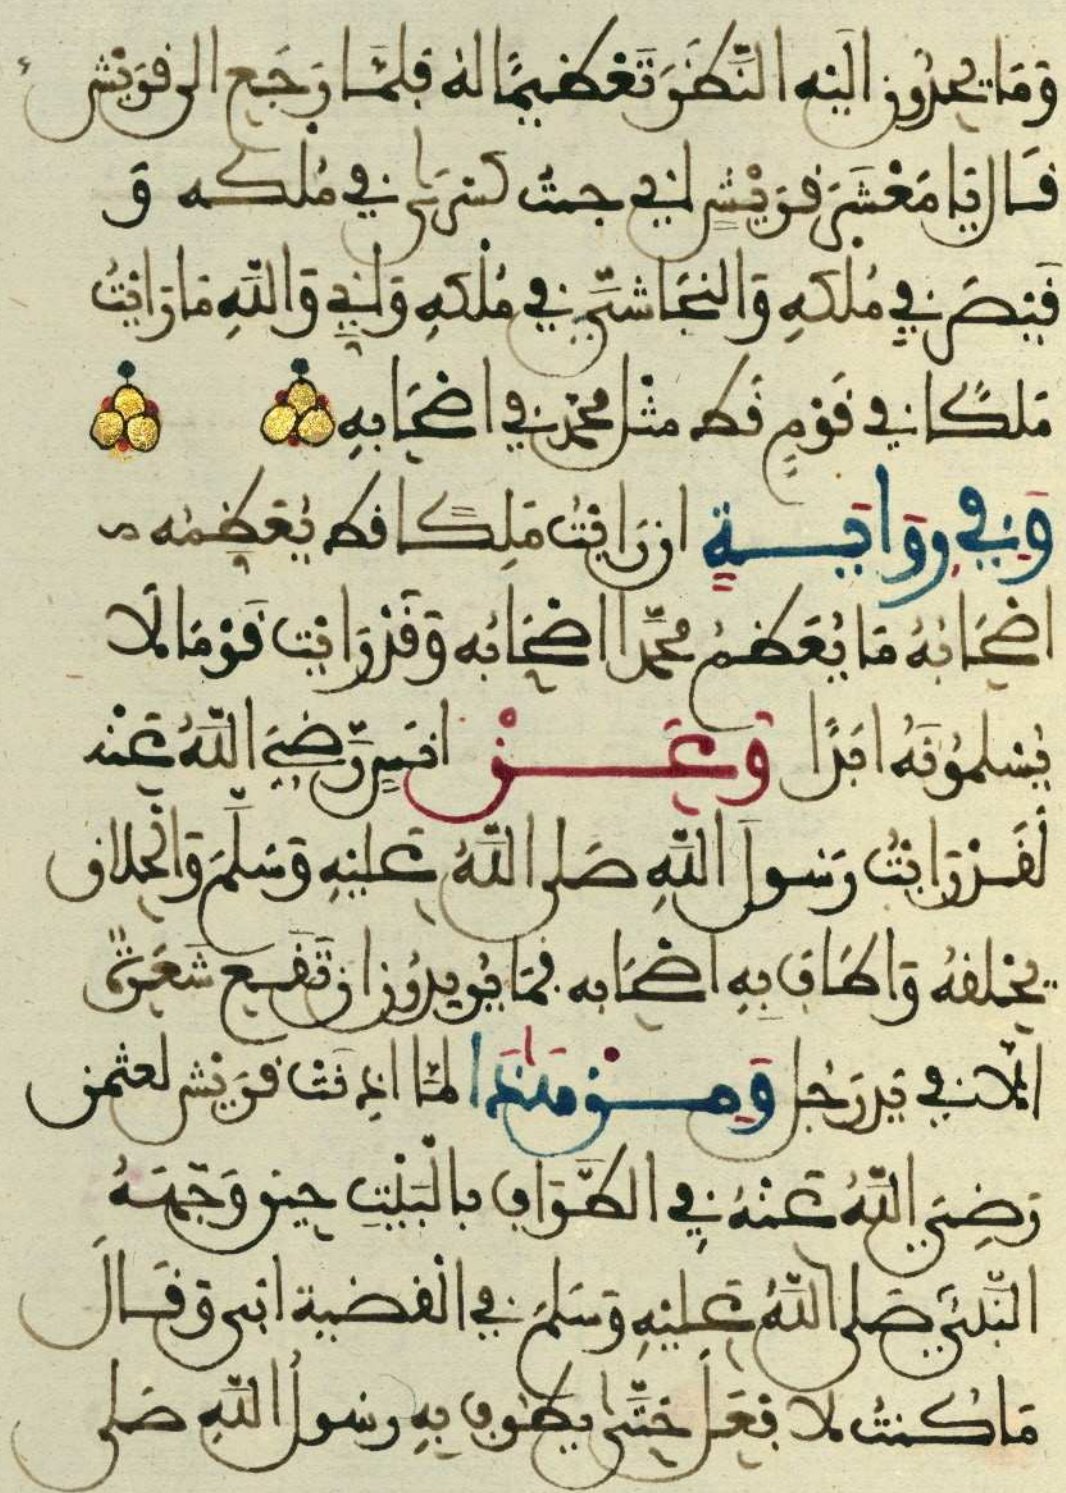 وَمَا يحدون الَيْه النَّظَرَ تَعْظيمًا لهُ فَلمَّا رَجَع الى قرَيْش
قَال يَا مَعْشَرَ قرَيْشٍ انِّي جئتُ كسْرَىٰ فِي مُلْكه وَ
قَيْصَرَ فِي مُلْكِهِ وَالنجَاشىَّ فِي مُلْكِهِ وَانِّي وَاللَّهِ مَا رَايْتُ
مَلكًا فِي قَوْمٍ قَط مثْل محَمَّد فِي اصْحَابهِ
وَفِي رِوَايَةٍ ان رَايْتُ مَلِكًا قط يُعَظِّمُه
اصْحَابُهُ مَا يُعَظمُ محمَّدا اصْحَابُه وَقَدْ رَايْت قَوْمَا لَا
يُسْلمُونَهُ ابَدًا وَعَنْ انَسٍ رَّضِيَ اللَّهُ عَنْه
لَقَدْ رَايْتُ رَسُولَ اللَّهِ صَلى اللَّهُ عَليْهِ وَسَلَّمَ وَالْحلاق
يَحْلقهُ وَاطَاف بِهِ اصْحَابه فمَا يُريدُون ان تَقَع شَعَرَةٌ
الَّا فِي يَد رَجُل وَمِنْ هَٰذَا لمَّا اذنَتْ قرَيْش لعثمٰن
رَضِيَ اللَّهُ عَنْهُ فِي الطَّوَاف بالْبَيْتِ حين وَجَّهَهُ
النَّبِيّ صَلى اللَّهُ عَليْهِ وَسَلمَ فِي الْقضية ابى وَقَالَ
مَا كُنتُ لَافْعَل حَتَّىٰ يطُوف بِهِ رسُولُ اللَّهِ صَلى